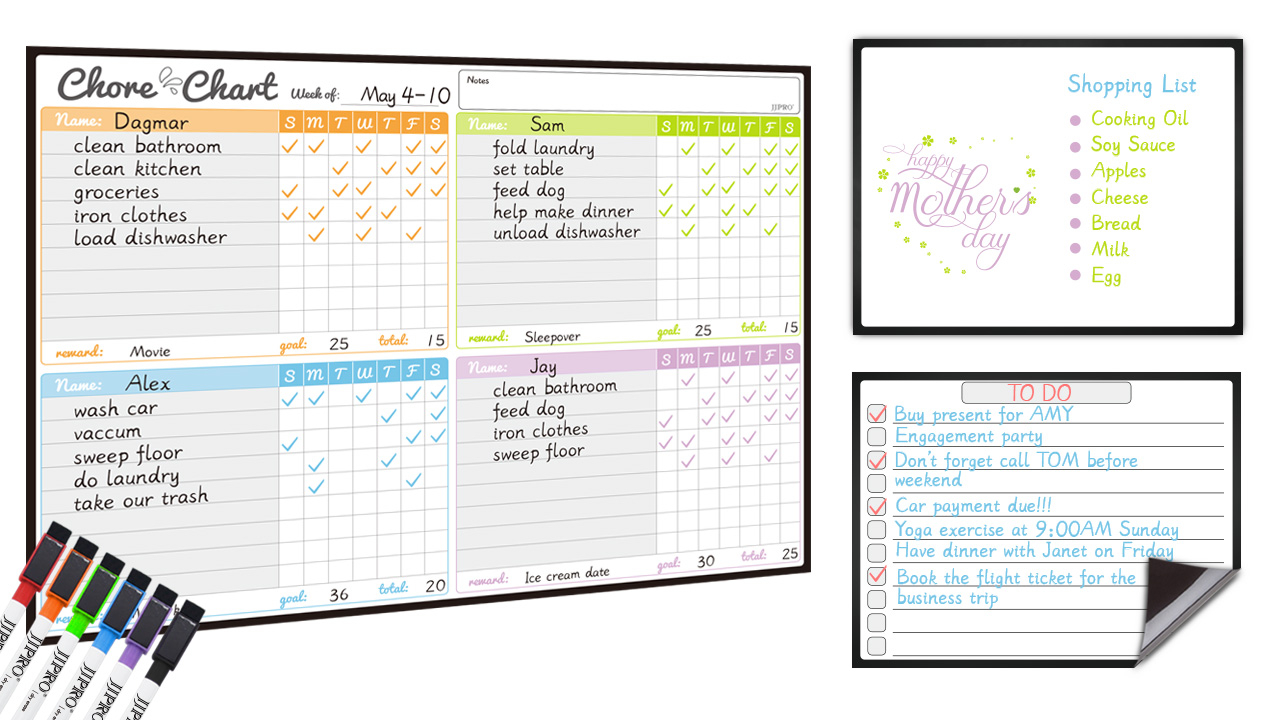 Chore Chart
Week of: May 4-10
Notes
JJPRO
Name: Dagmar S M T W T F S
clean bathroom
clean kitchen
groceries
iron clothes
load dishwasher
reward: Movie goal: 25 total: 15
Name: Sam S M T W T F S
fold laundry
set table
feed dog
help make dinner
unload dishwasher
reward: Sleepover goal: 25 total: 15
Name: Alex S M T W T F S
wash car
vaccum
sweep floor
do laundry
take our trash
goal: 36 total: 20
Name: Jay S M T W T F S
clean bathroom
feed dog
iron clothes
sweep floor
reward: Ice cream date goal: 30 total: 25
JJPRO®
JJPRO®
JJPRO®
JJPRO®
JJPRO®
happy
Mother's
day
Shopping List
Cooking Oil
Soy Sauce
Apples
Cheese
Bread
Milk
Egg
TO DO
Buy present for AMY
Engagement party
Don't forget call TOM before
weekend
Car payment due!!!
Yoga exercise at 9:00AM Sunday
Have dinner with Janet on Friday
Book the flight ticket for the
business trip